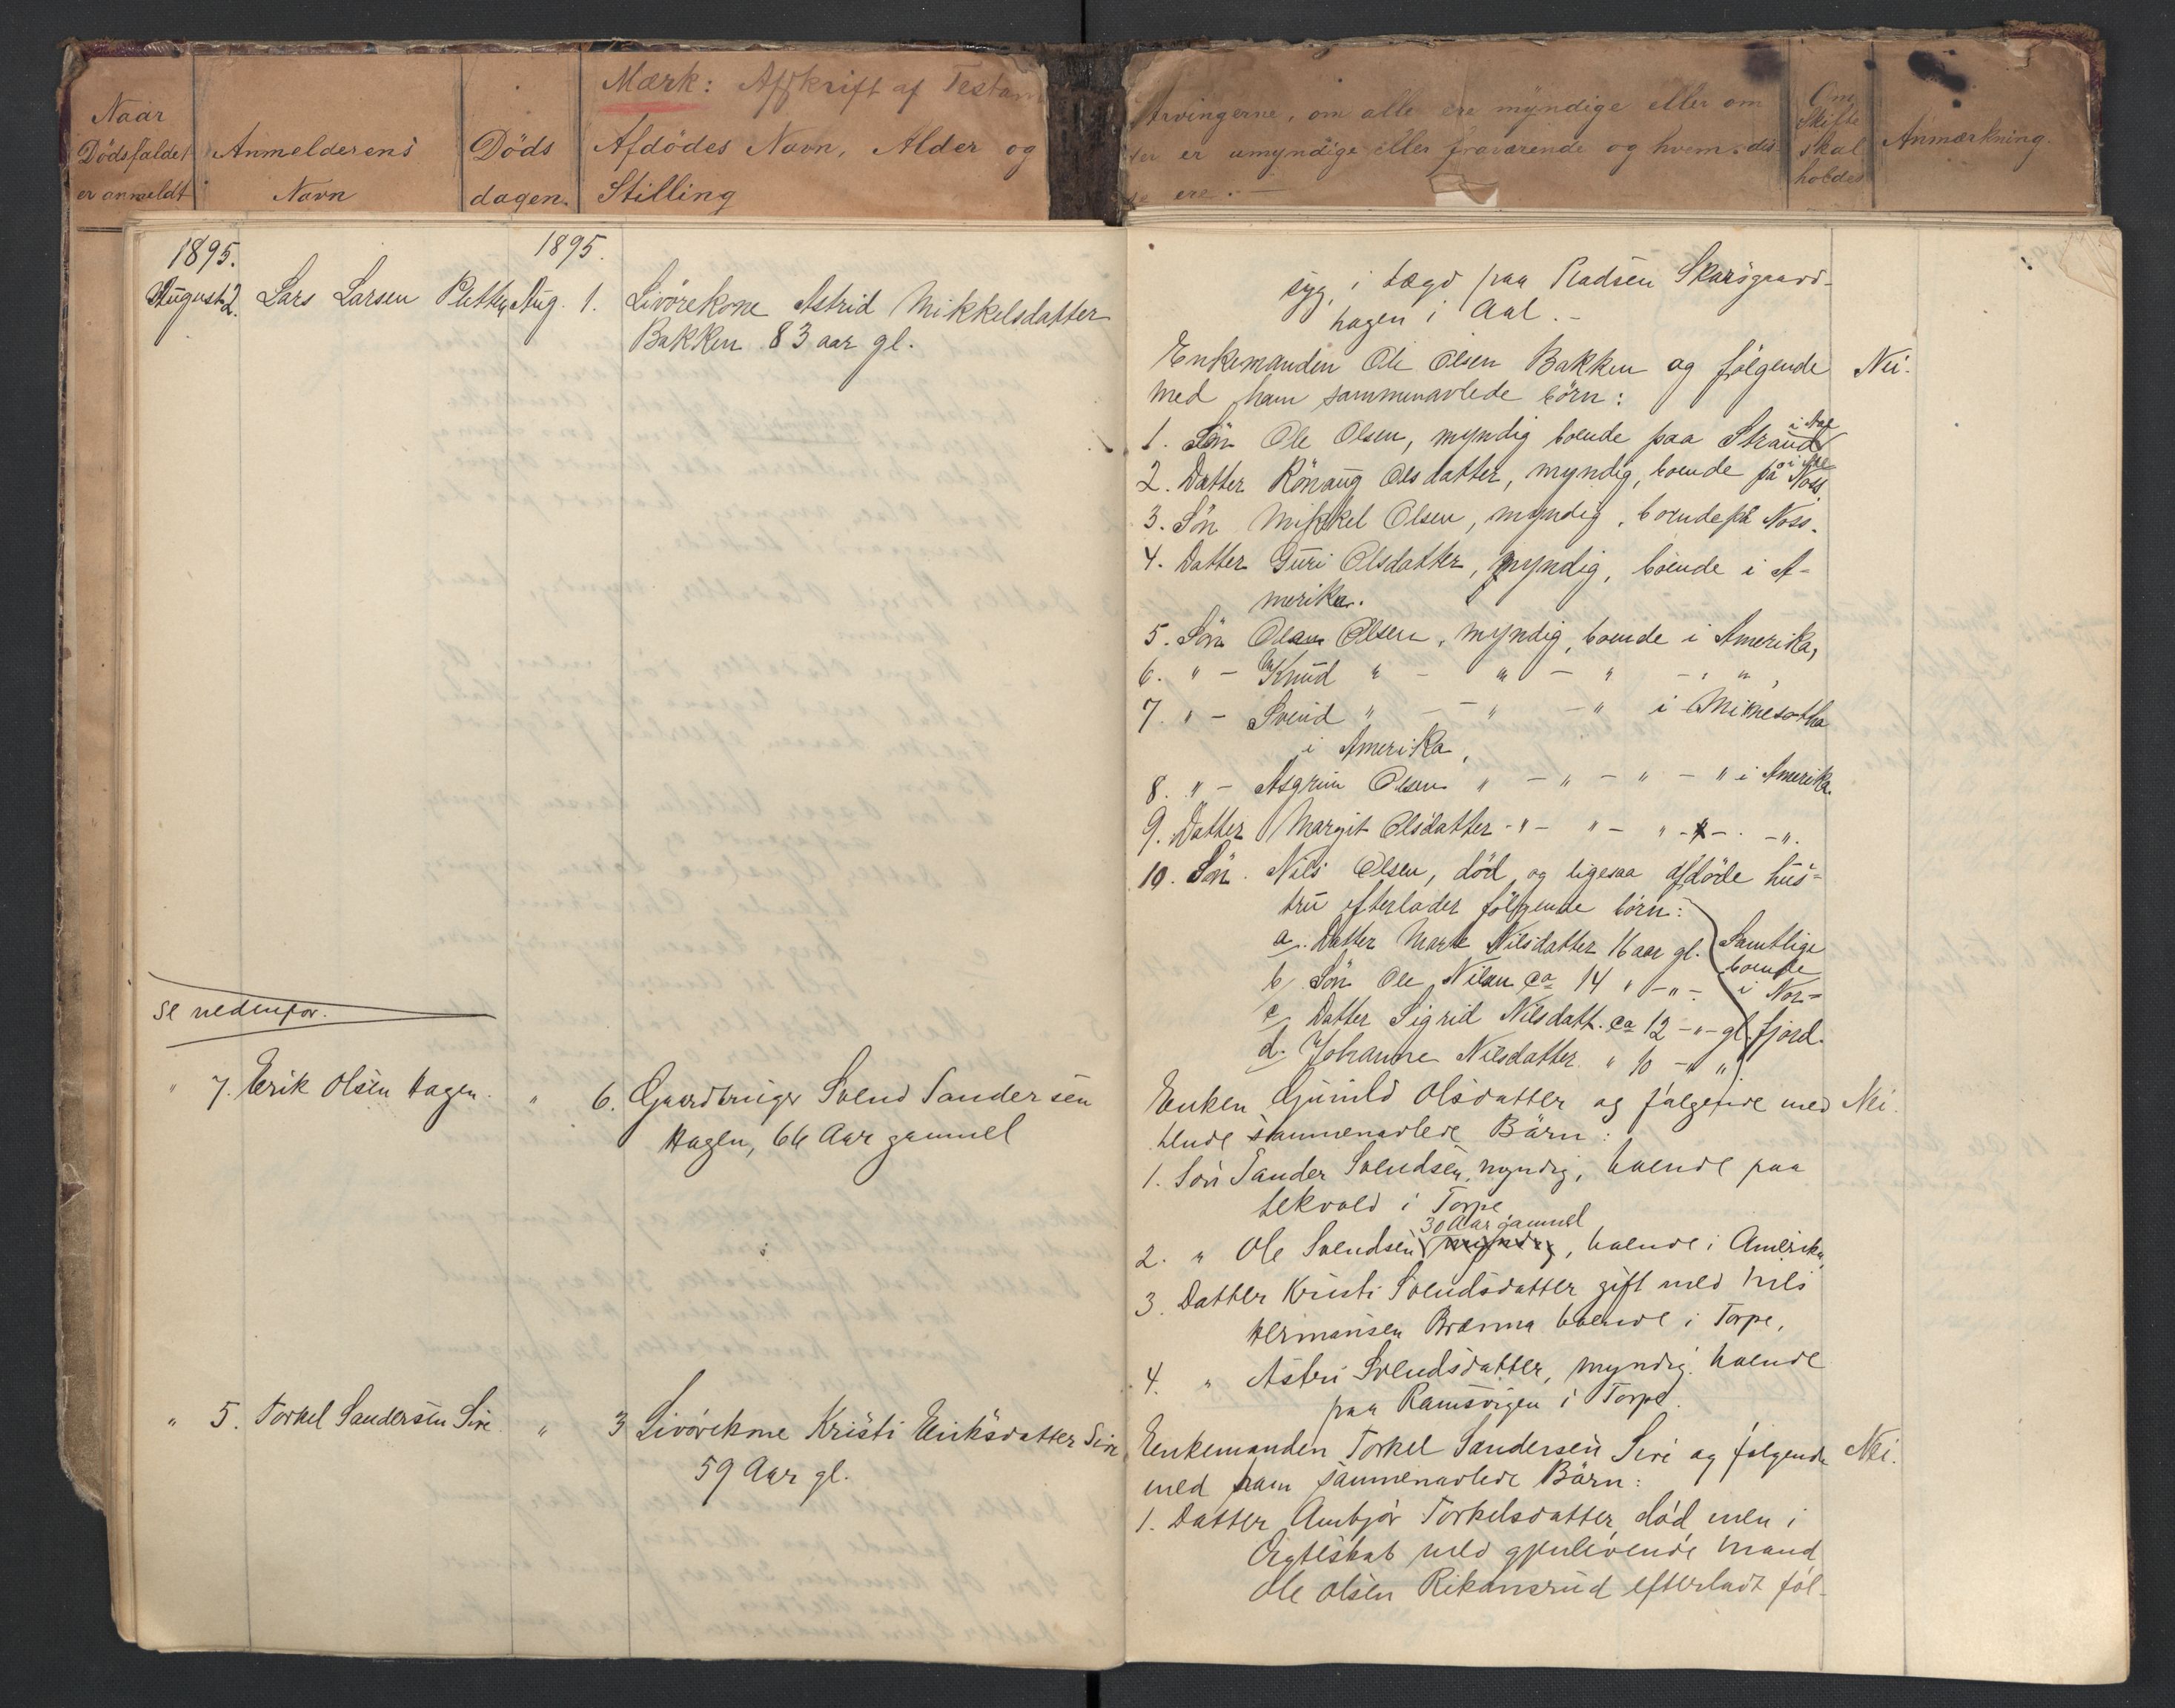 Mærk: Afskrift af Testam
Naar
Dödsfaldet
er anmeldt
Anmelderens
Navn
Döds
dagen.
Afdödes Navn, Alder og
Stilling
Arvingerne, om alle ere myndige eller om
er umyndige eller fraværende og hvem dis-
ere. —
Om
Skifte
skal
holdes
Anmærkning.
1895.
1895.
August 2. Lars Larsen Pletten Aug. 1. Livörekone Astrid Mikkelsdatter
Bakken 83 aar gl.
se nedenfor.
" 7. Erik Olsen Hagen. " 6. Gaardbruger Svend Sandersen
Hagen, 66 Aar gammel
" 5. Torkel Sandersen Sire " 3 Livörekone Kristi Eriksdatter Sire
59 Aar gl.
syg, i Lægd paa Pladsen Skarsgaard-
hagen i Aal. -
Enkemanden Ole Olsen Bakken og følgende Nei.
med ham sammenavlede börn:
1. Sön Ole Olsen, myndig boende paa Strand i Aal
2. Datter Rönaug Olsdatter, myndig, boende på Noss i Aal
3. Sön Mikkel Olsen, myndig, boende på Noss.
4. Datter Guri Olsdatter, myndig, boende i A-
merika.
5. Sön Olsen, myndig, boende i Amerika,
6. " - Knud " - " - " - " ,
7. " - Svend " - " - " i Minesotha
i Amerika,
8. " - Asgrim Olsen " - " - " - " i Amerika.
9. Datter Margit Olsdatter - " - " - " - " - . - ".
10. Sön. Nils Olsen, död og ligesaa afdöde hus-
tru efterlader fölgende börn:
a. Datter Marte Nilsdatter 16 aar gl. Samtlige
b. Sön Ole Nilsen ca 14 " - " - boende i Nor-
c. Datter Sigrid Nilsdatt. ca 12 - " - gl. fjord.
d. Johanne Nilsdatter " 10 - " "
Enken Gunild Olsdatter og følgende med Nei.
hende sammenavlede Börn:
1. Sön Sander Svendsen, myndig, boende paa
Lekvold i Torpe
2. " Ole Svendsen 30 Aar gammel, boende i Amerika,
3. Datter Kristi Svendsdatter gift med Nils
Hermansen Brænna boende i Torpe,
4. " Astri Svendsdatter, myndig. boende
paa Ramsvigen i Torpe.
Enkemanden Torkel Sandersen Sire og følgende Nei.
med ham sammenavlede Börn:
1. Datter Ambjör Torkelsdatter, död, men i
Ægteskab med gjenlevende Mand
Ole Olsen Rikansrud efterladt föl-